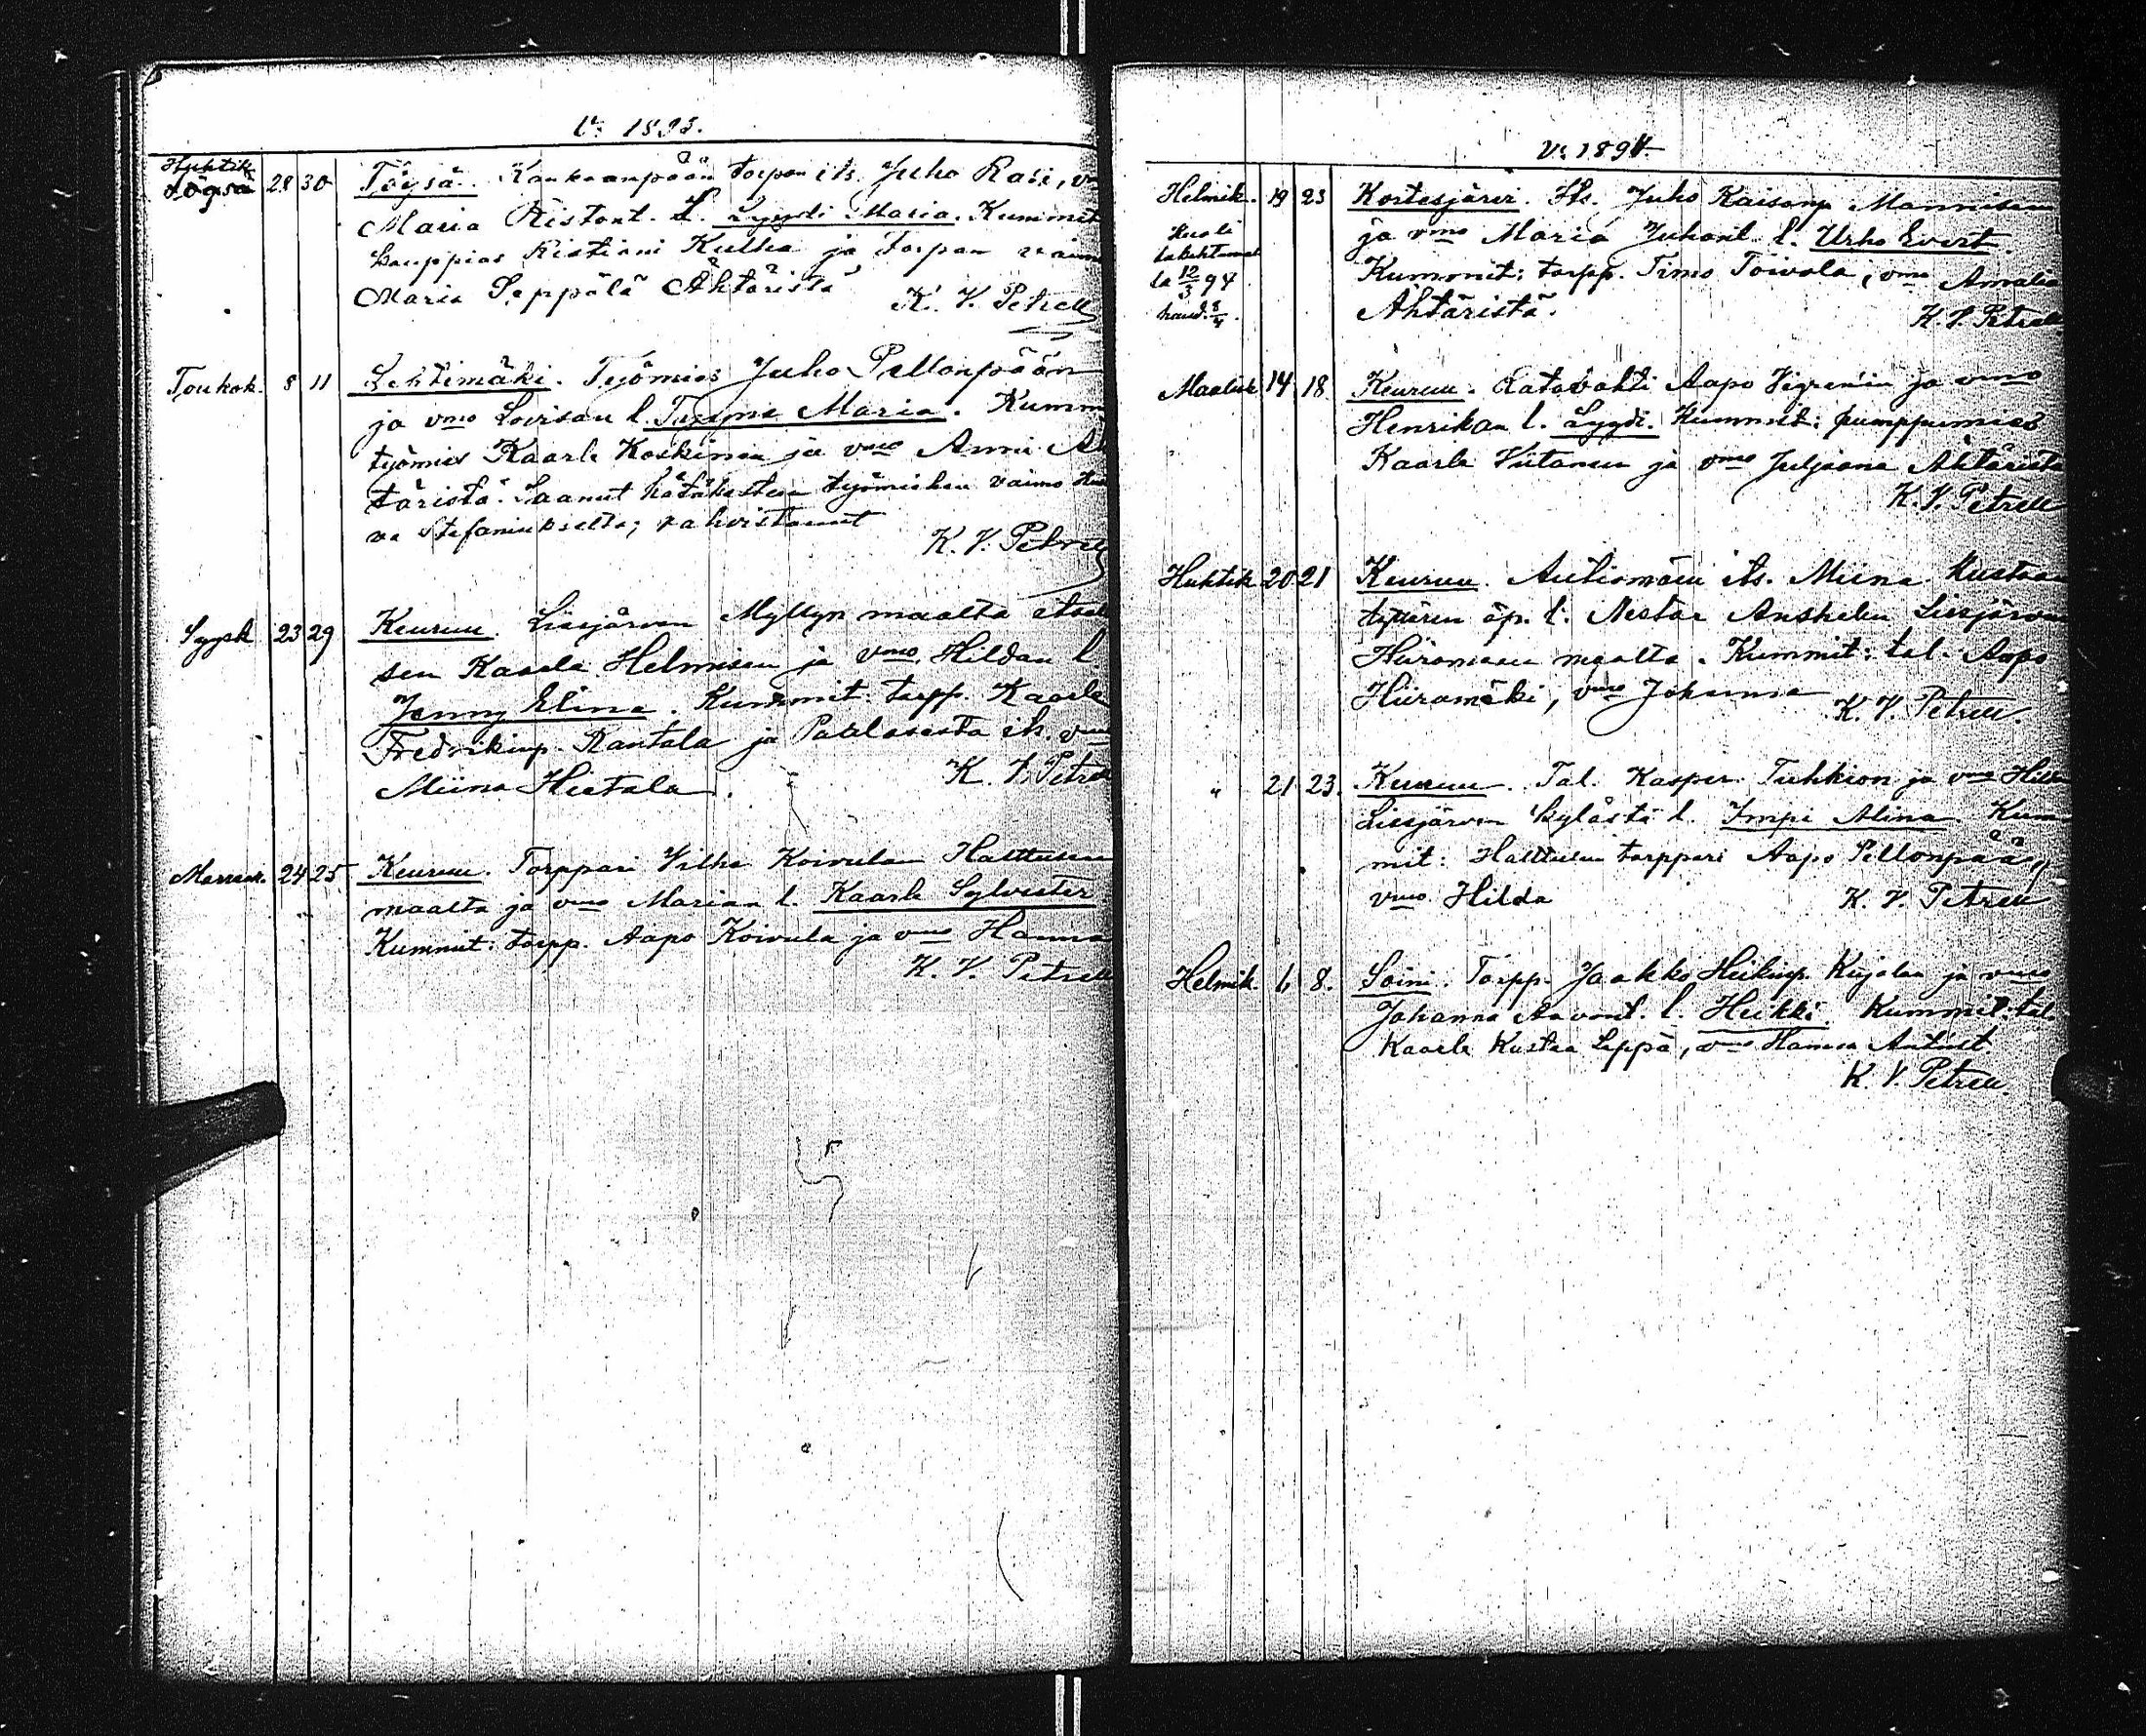 V: 1893.
Huhtik. 28 30 Töysä. Kankaanpään torpan its. Juho Rasi, v
Töysä
Maria Ristont. L. Lyydi Maria. Kummit
kauppias Kristiani Kulha ja torpan vaim
Maria Seppälä Ähtäristä K. V. Petrell
Toukok. 8 11 Lehtimäki. Työmies Juho Pellonpään
ja vmo Lovisan l. Tyyne Maria. Kumm
työmies Kaarle Koskinen ja vmo Anni Äh
täristä. Saanut hätäkasteen työmiehen vaimo
Stefanukselta; vahvistanut
K. V. Petrell
Syysk. 23 29 Keuruu. Liesjärven Myllyn maalta itsel
sen Kaarle Helmisen ja vmo Hildan l.
Jenny Elina. Kummit: torpp. Kaarle
Fredrikinp. Rantala ja its. vmo
Miina Hietala. K. V. Petrell
Marrask. 24 25 Keuruu. Torppari Vilho Koivulan Halttusen
maalta ja vmo Marian l. Kaarle Sylvester
Kummit: torpp. Aapo Koivula ja vmo Hanna
K. V. Petrell
V: 1894.
Helmik. 19 23 Kortesjärvi. Its. Juho Kaisanp. Mannisen
ja vmo Maria Juhont. l. Urho Evert.
Kummit: torpp. Timo Toivola, vmo Amalia
Ähtäristä. K. V. Petrell
Kuoli
12/3 94
haud. 8/4.
Maalisk. 14 18 Keuruu. Ratavahti Aapo Vigrenin ja vmo
Henrikan l. Lyydi. Kummit: pumppumies
Kaarle Viitanen ja vmo Juljaana Ähtäristä
K. V. Petrell
Huhtik. 20 21 Keuruu. Autiomäen its. Miina Kustaan
tyttären äp. l. Nestor Anshelm Liesjärven
Hiiromäen maalta. Kummit: tal. Aapo
Hiiromäki, vmo Johanna K. V. Petrell.
" 21 23. Keuruu. Tal. Kasper Tuhkion ja vmo Hilda
Liesjärven kylästä l. Impi Alina. Kum
mit: Halttusen torppari Aapo Pellonpää,
vmo Hilda K. V. Petrell
Helmik. 6 8. Soini. Torpp. Jaakko Heikinp. Kujalan ja vmo
Johanna Aavont. l. Heikki. Kummit: tal.
Kaarle Kustaa Leppä, vmo Hanna Antint.
K. V. Petrell